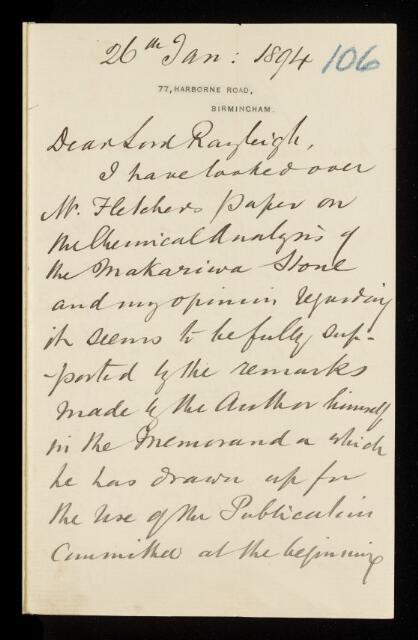 26th Jan: 1894 106
77, HARBORNE ROAD,
BIRMINGHAM.
Dear Lord Rayleigh,
I have looked over
Mr. Fletchers paper on
the Chemical Analysis of
the Makariwa Stone
and my opinion regarding
it seems to be fully sup-
-ported by the remarks
made by the Author himself
in the Memoranda which
he has drawn up for
the use of the Publication
Committee at the beginning